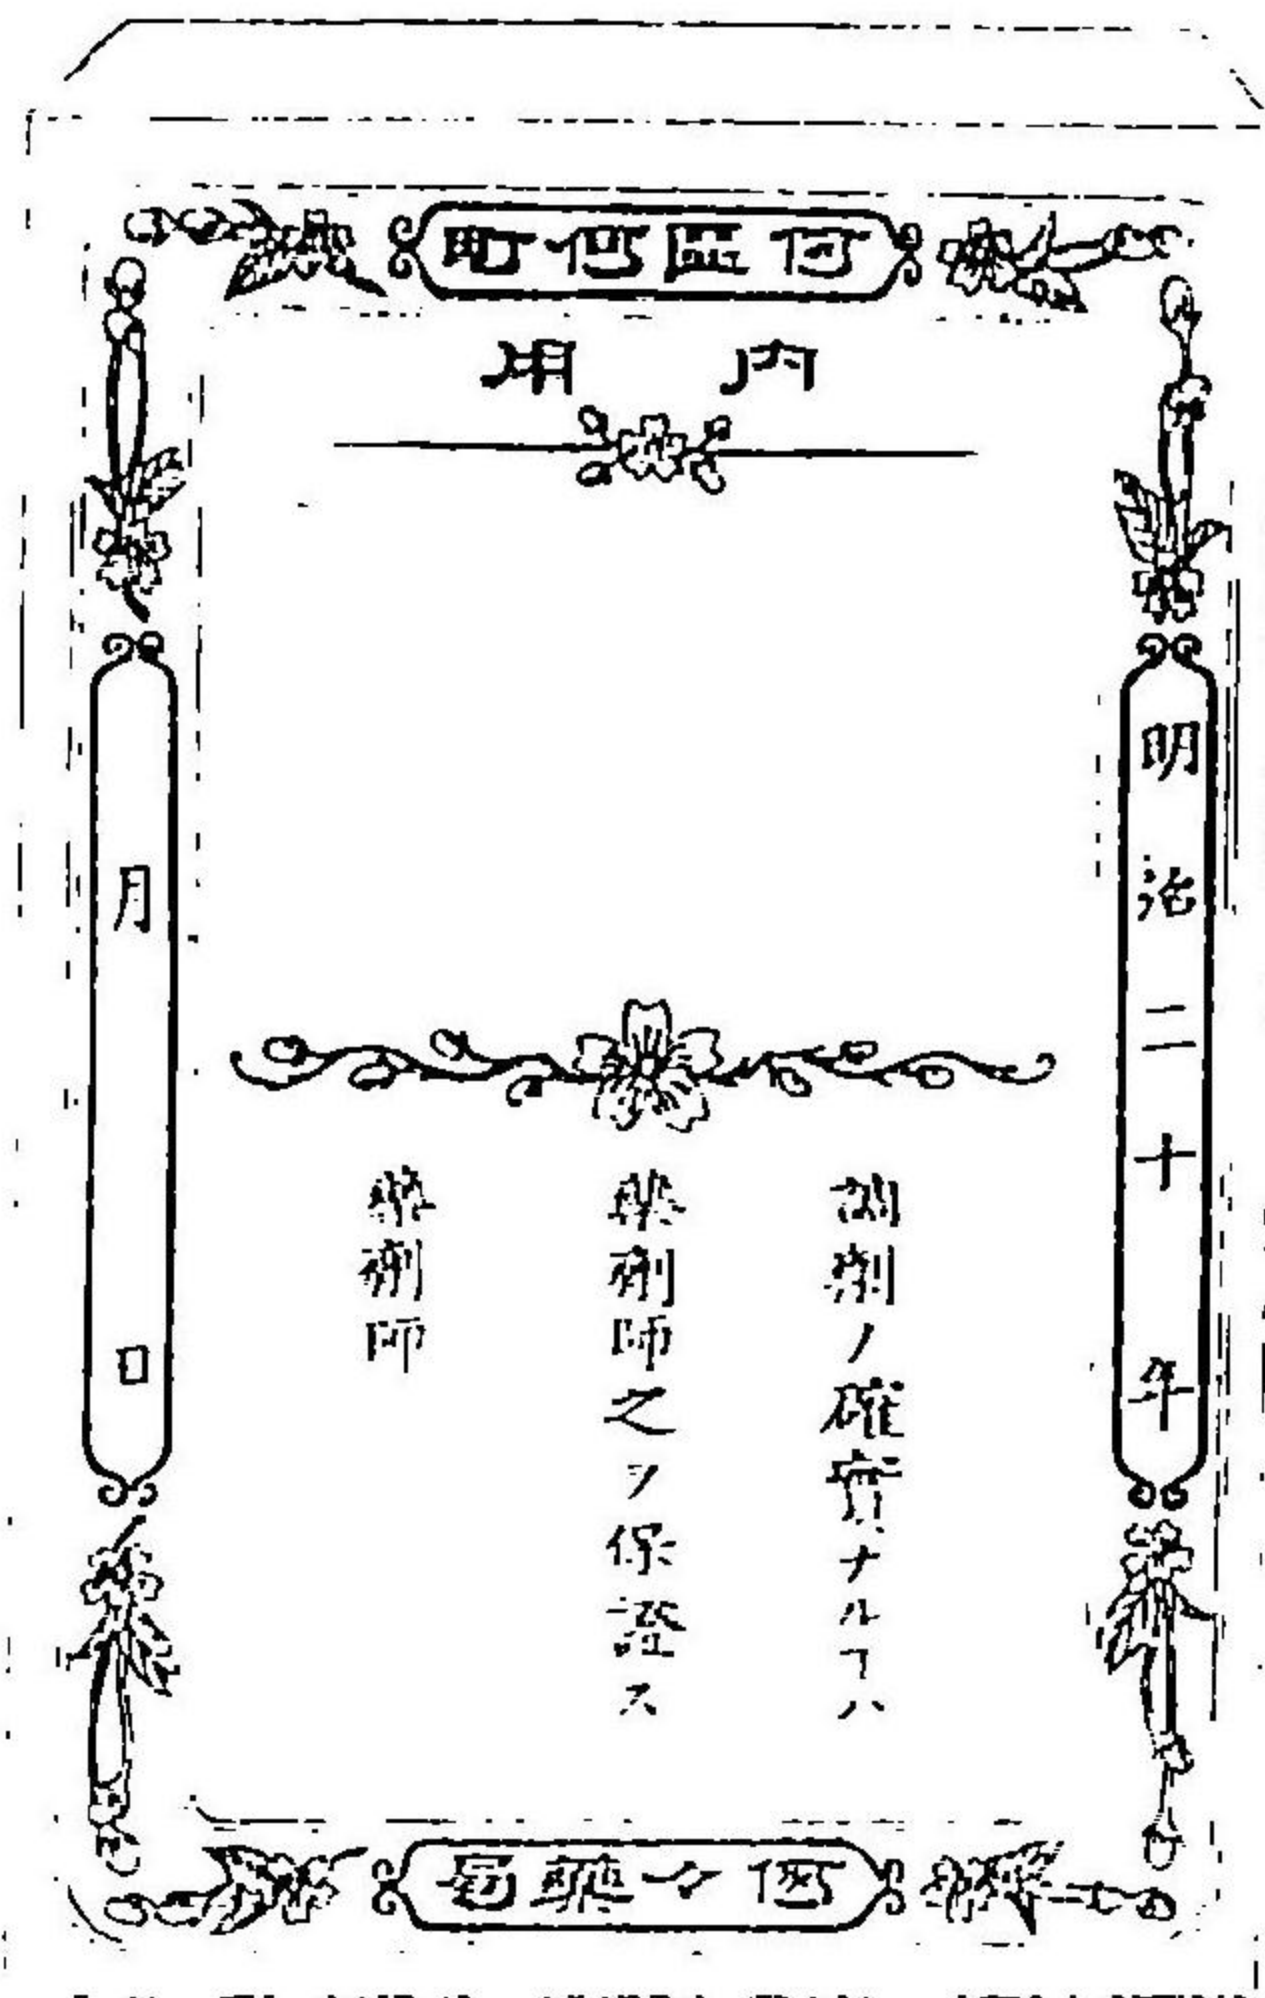 何區何町
内用
明治二十年
調劑ノ確實ナルヿハ
藥劑師之ヲ保證ス
藥劑師
月日
何々藥局